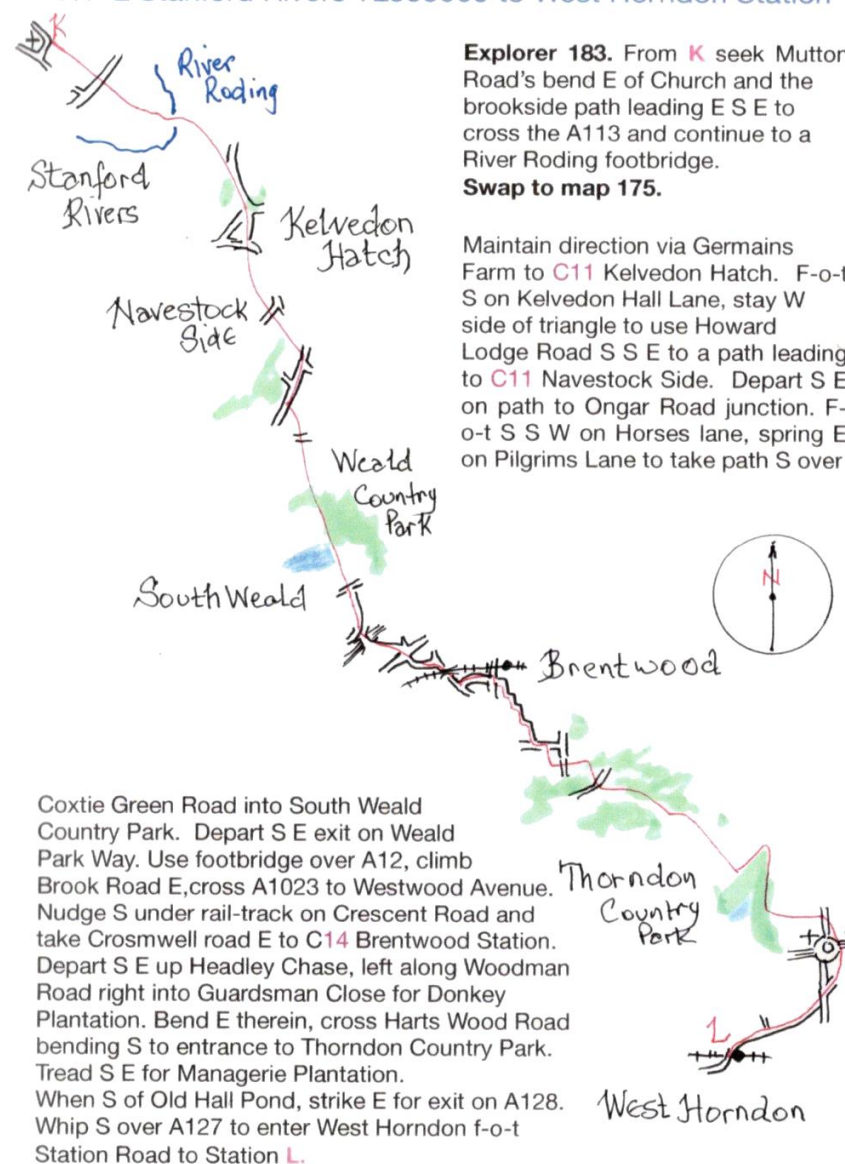 Stanford Rivers to West Horndon Station
K
River
Roding
Explorer 183. From K seek Mutton
Road's bend E of Church and the
brookside path leading E S E to
cross the A113 and continue to a
River Roding footbridge.
Swap to map 175.
Stanford
Rivers
Kelvedon
Hatch
Maintain direction via Germains
Farm to C11 Kelvedon Hatch. F-o-t
S on Kelvedon Hall Lane, stay W
side of triangle to use Howard
Lodge Road S S E to a path leading
to C11 Navestock Side. Depart S E
on path to Ongar Road junction. F-
o-t S S W on Horses lane, spring E
on Pilgrims Lane to take path S over
Navestock
Side
Weald
Country
Park
N
South Weald
Brentwood
Coxtie Green Road into South Weald
Country Park. Depart S E exit on Weald
Park Way. Use footbridge over A12, climb
Brook Road E,cross A1023 to Westwood Avenue.
Nudge S under rail-track on Crescent Road and
take Crosmwell road E to C14 Brentwood Station.
Depart S E up Headley Chase, left along Woodman
Road right into Guardsman Close for Donkey
Plantation. Bend E therein, cross Harts Wood Road
bending S to entrance to Thorndon Country Park.
Tread S E for Managerie Plantation.
When S of Old Hall Pond, strike E for exit on A128.
Whip S over A127 to enter West Horndon f-o-t
Station Road to Station L.
Thorndon
Country
Park
L
West Horndon